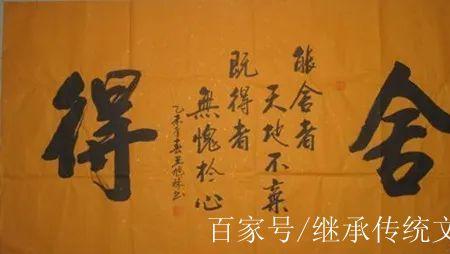 舍
能舍者
天地不棄
既得者
無愧於心
乙未年春王
得
百家号/继承传统文